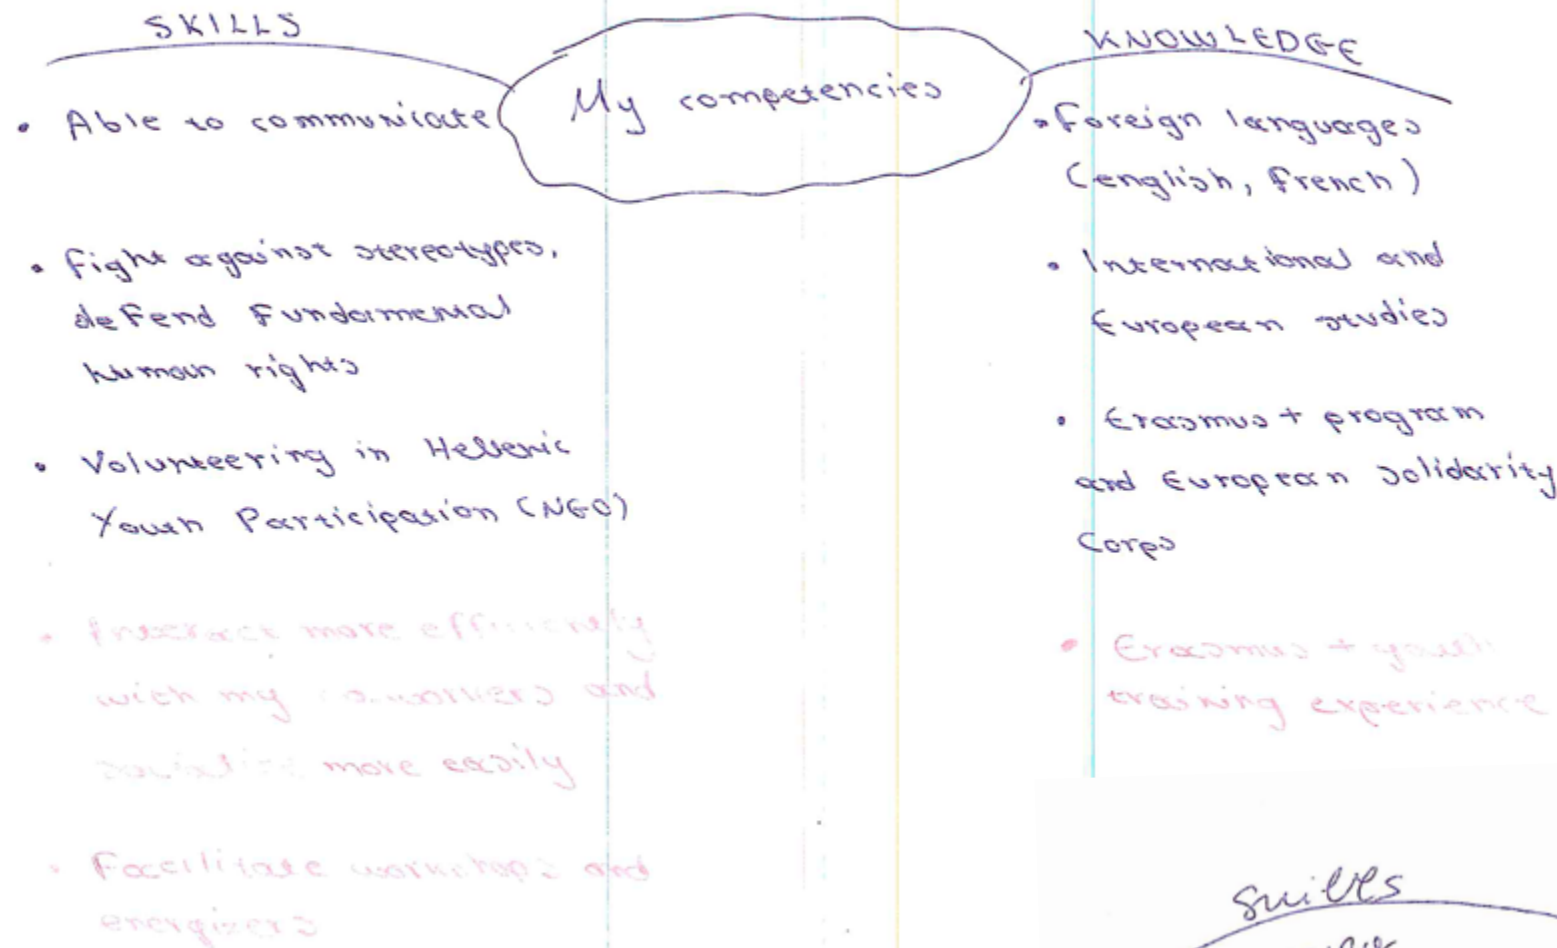 My competencies
SKILLS
• Able to communicate
• Fight against stereotypes,
defend fundamental
human rights
• Volunteering in Hellenic
Youth Participation (NGO)
• Interact more efficiently
with my co-workers and
socialize more easily
• Facilitate workshops and
energizers
KNOWLEDGE
• Foreign languages
(english, french)
• International and
European studies
• Erasmus + program
and European Solidarity
Corps
• Erasmus + youth
training experience
Skills